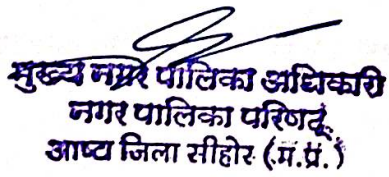 मुख्य नगर पालिका अधिकारी
नगर पालिका परिषद्
आष्टा जिला सीहोर (म.प्र.)